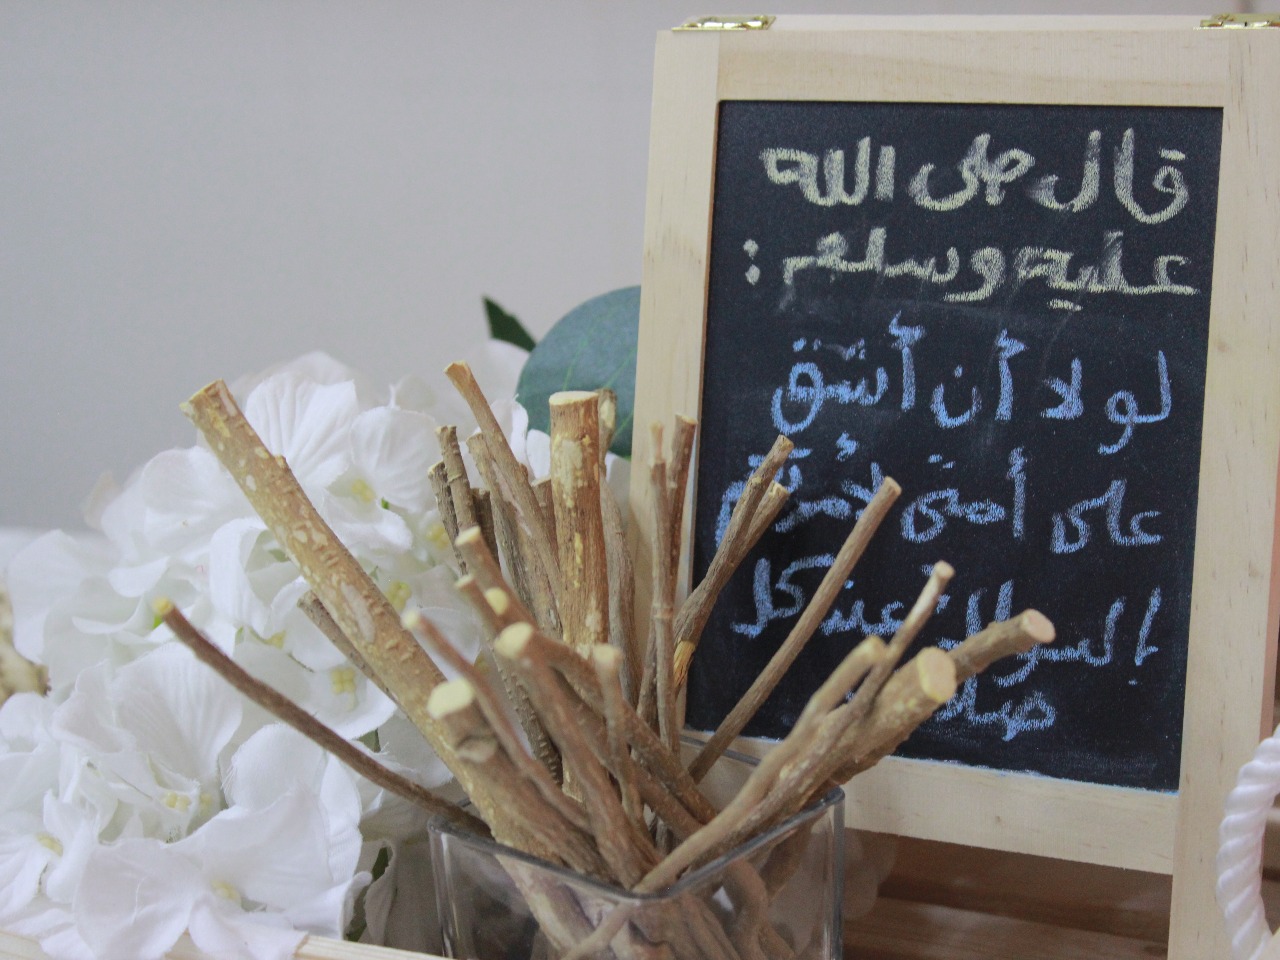 قال صلى الله
عليه وسلم:
لو لا أن أشق
على أمتي لأمرتهم
بالسواك عند كل
صلاة